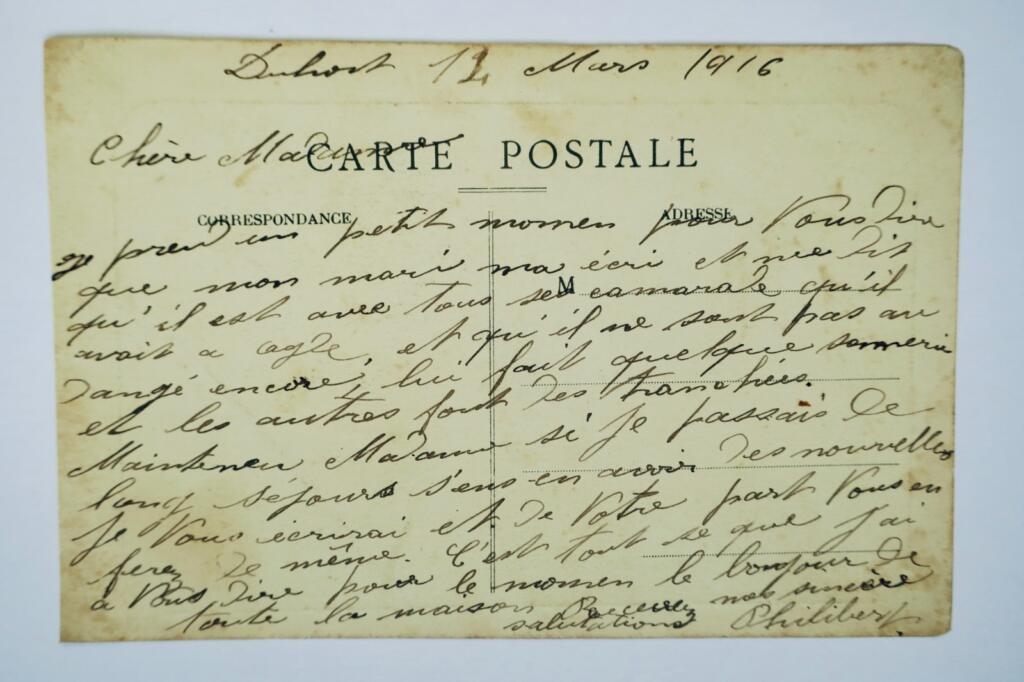 Duhort 12 Mars 1916
Chère Madame
CARTE POSTALE
CORRESPONDANCE
ADRESSE
M
je prend un petit momen pour Vous dire
que mon mari ma écri et me dit
qu'il est avec tous ses camarade qu'il
avait a et qu'il ne sont pas au
dangé encore, lui fait quelque
et les autres font des tranchées.
Maintenen Madame si je passais de
long séjours s'ens en avoir des nouvelles
je Vous écrirai et de Votre part Vous en
ferez de même. C'est tout se que j'ai
a Vous dire pour le momen le bonjour de
toute la maison Recevez nos sincère
salutations Philibert